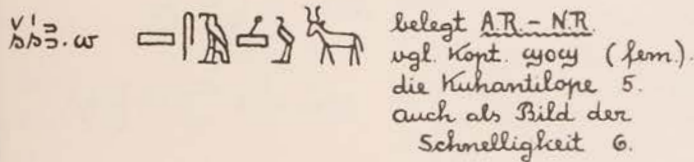 šśꜣ.w belegt A.R. – N.R.
vgl. Kopt. ϣⲟϣ (fem.).
die Kuhantilope 5.
auch als Bild der
Schnelligkeit 6.